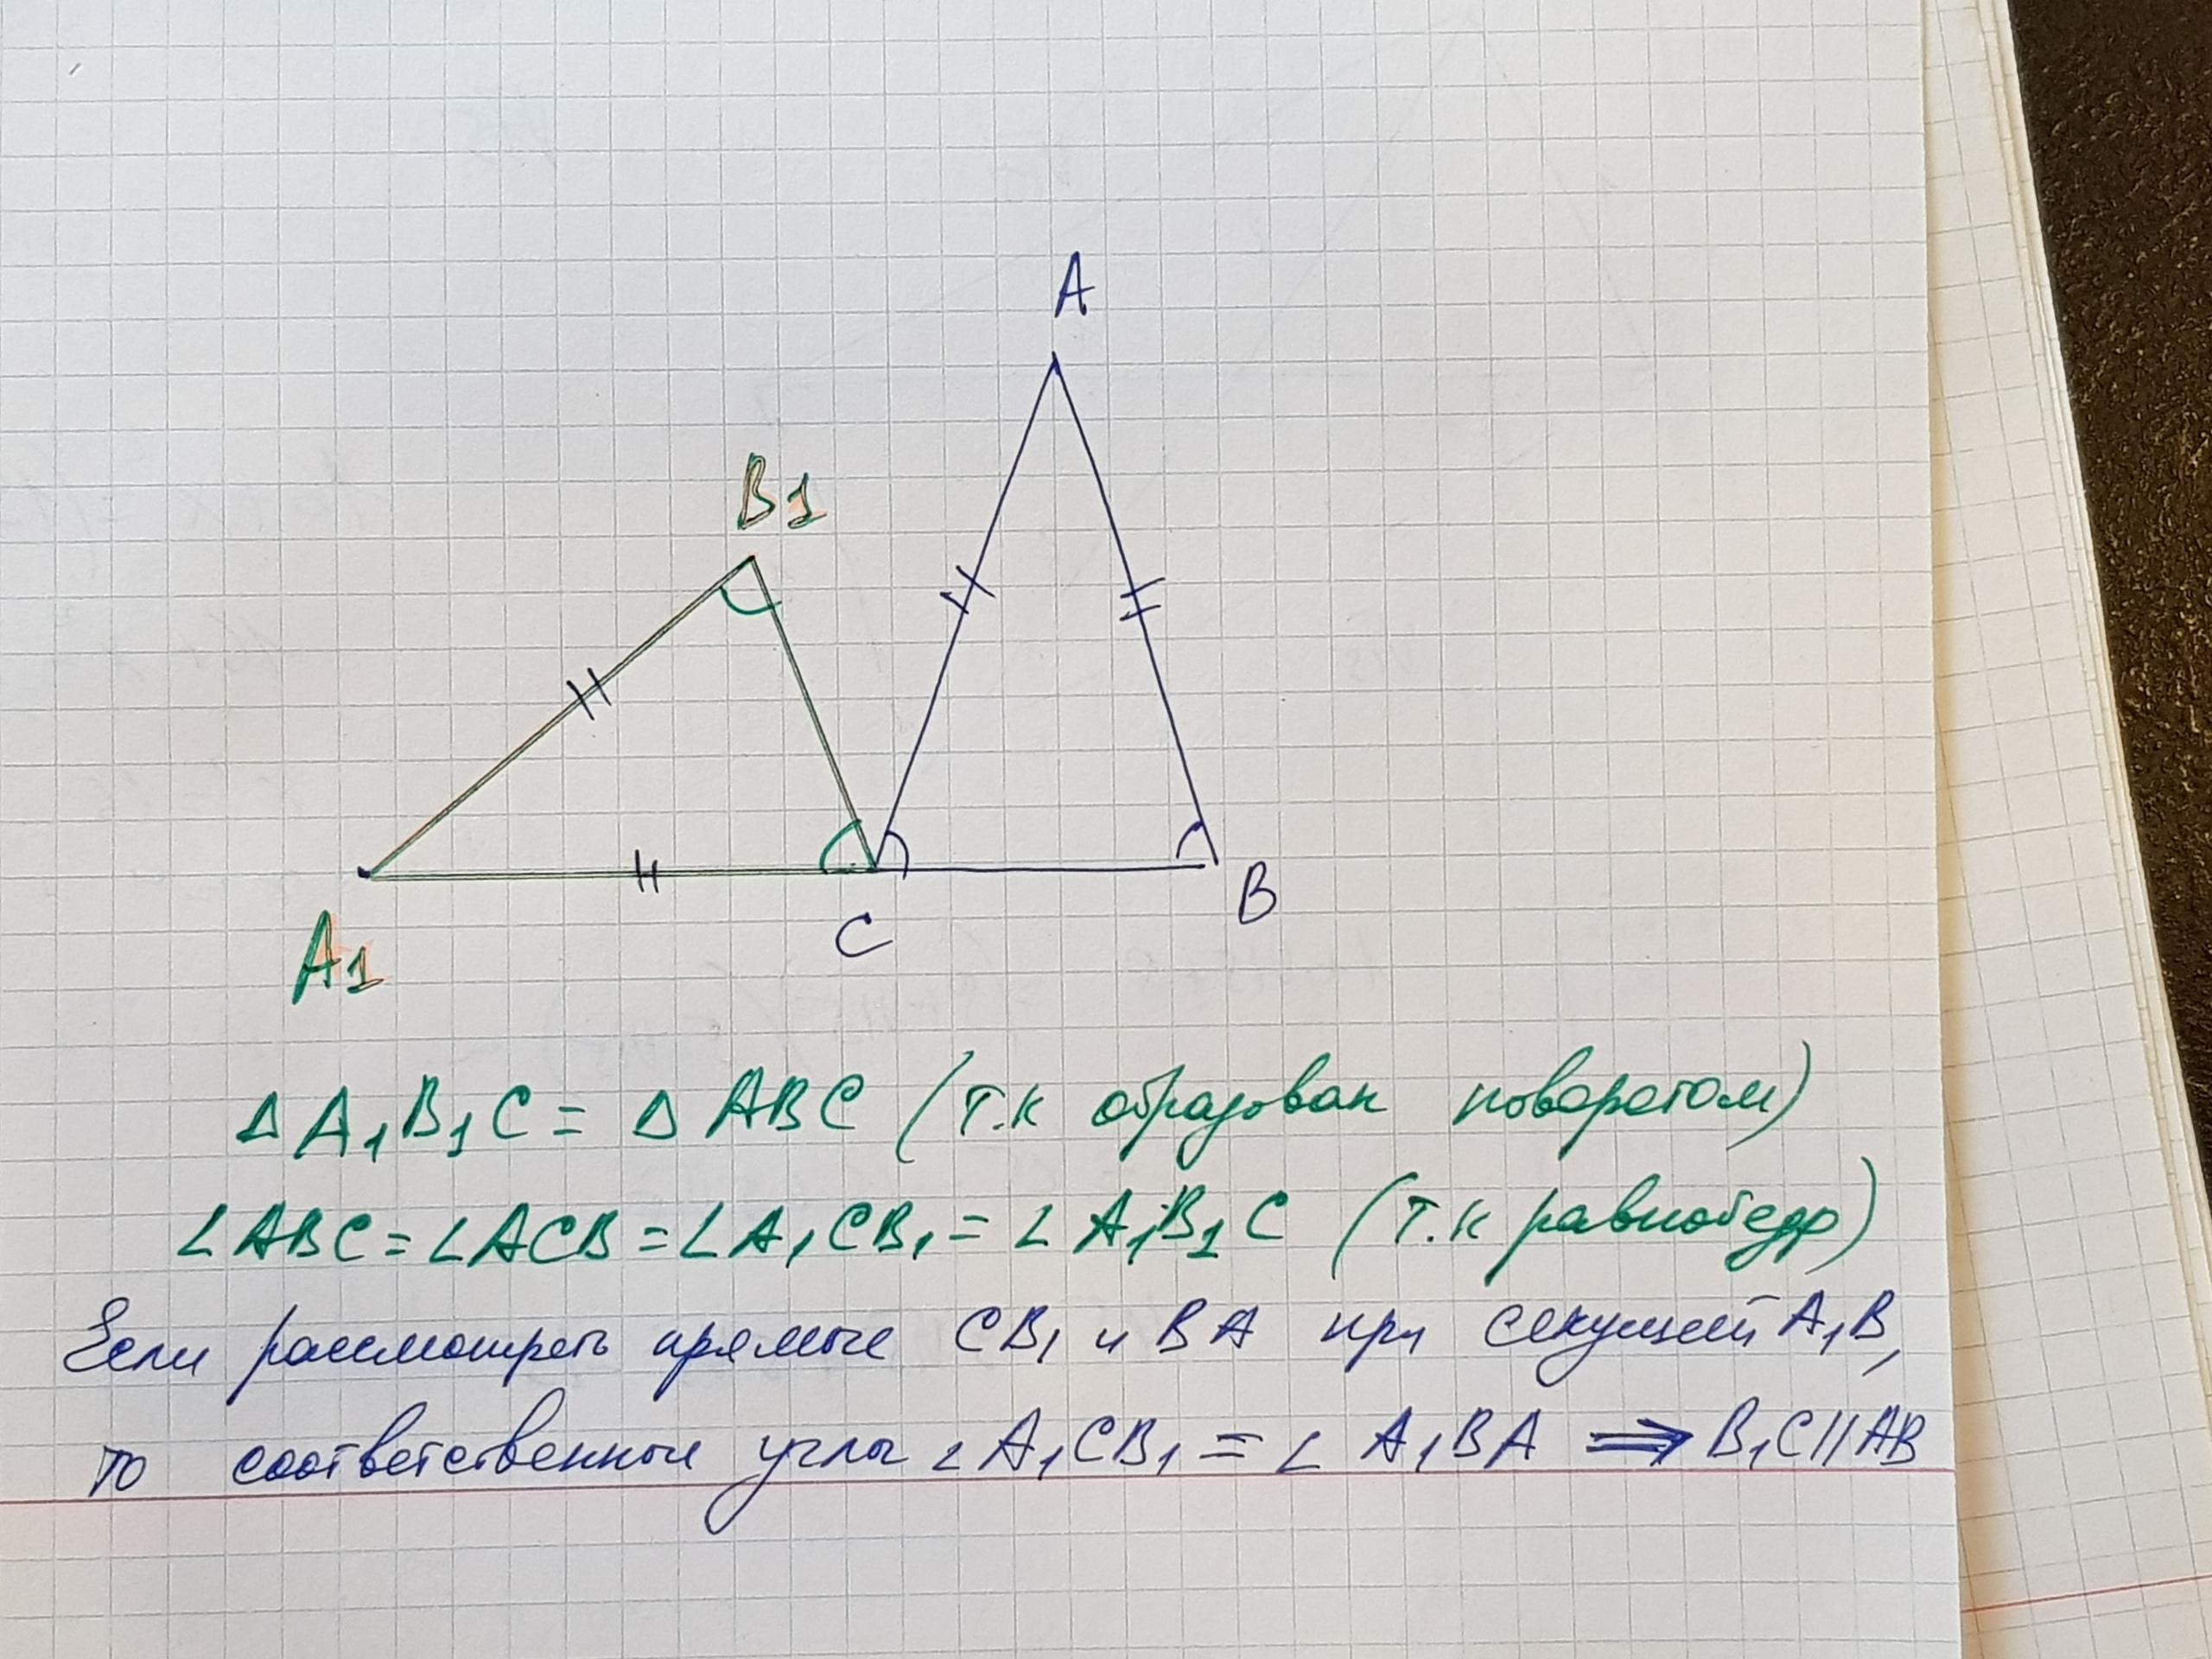 A
B1
A1
C
B
Δ A1B1C = Δ ABC (т.к образован поворотом)
∠ABC = ∠ACB = ∠A1CB1 = ∠A1B1C (т.к равнобедр)
Если рассмотреть прямые CB1 и BA при секущей A1B,
то соответственные углы ∠A1CB1 = ∠A1BA ⇒ B1C || AB